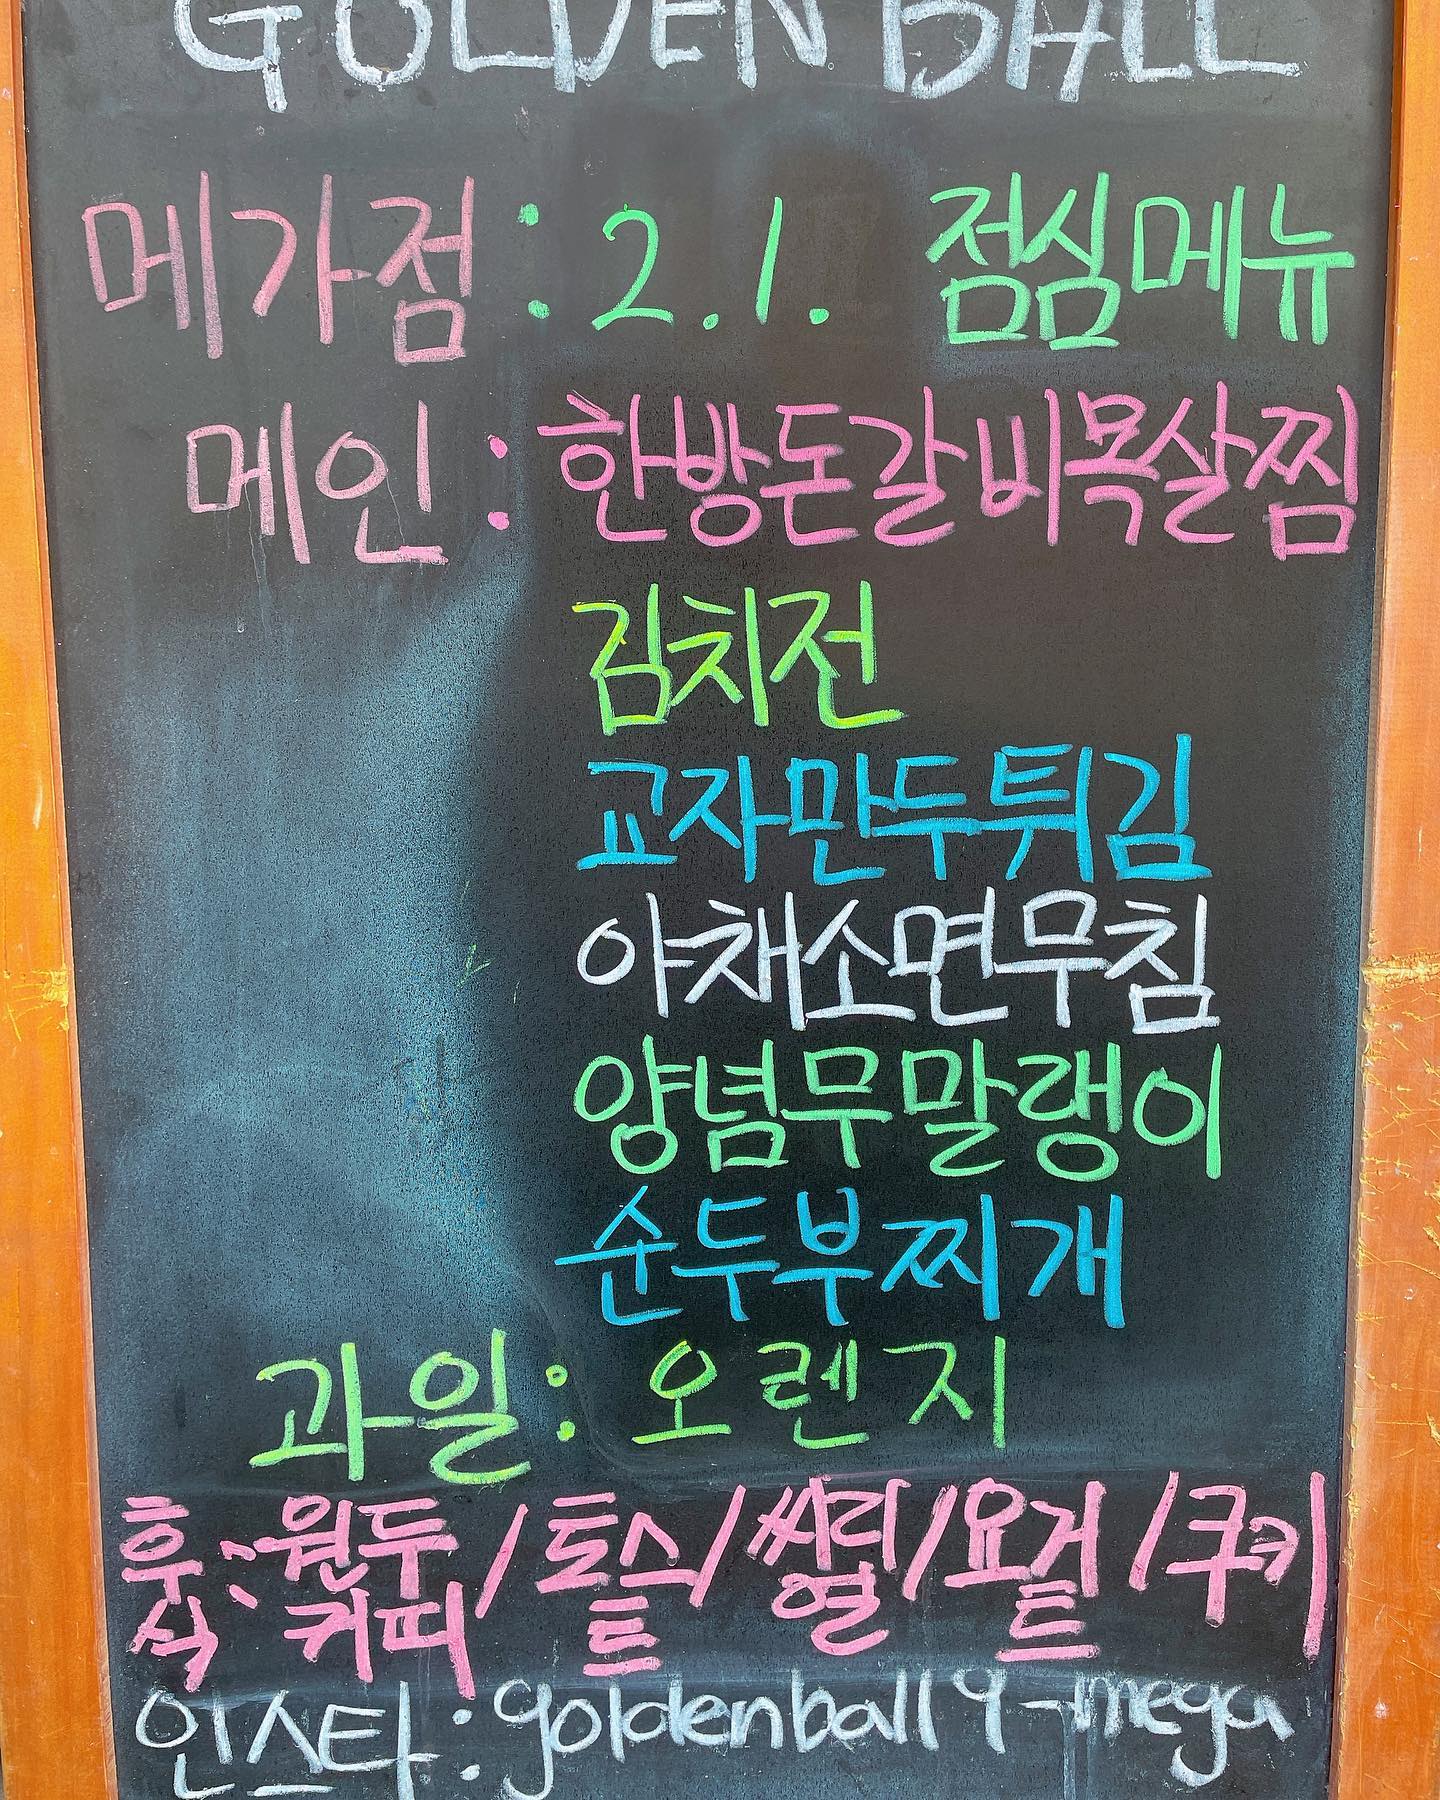 GOLDEN BALL
메가점 : 2.1. 점심메뉴
메인 : 한방돈갈비목살찜
김치전
교자만두튀김
야채소면무침
양념무말랭이
순두부찌개
과일 : 오렌지
후식 : 원두커피 / 토스트 / 씨리얼 / 요거트 / 쿠키
인스타 : goldenball9_mega